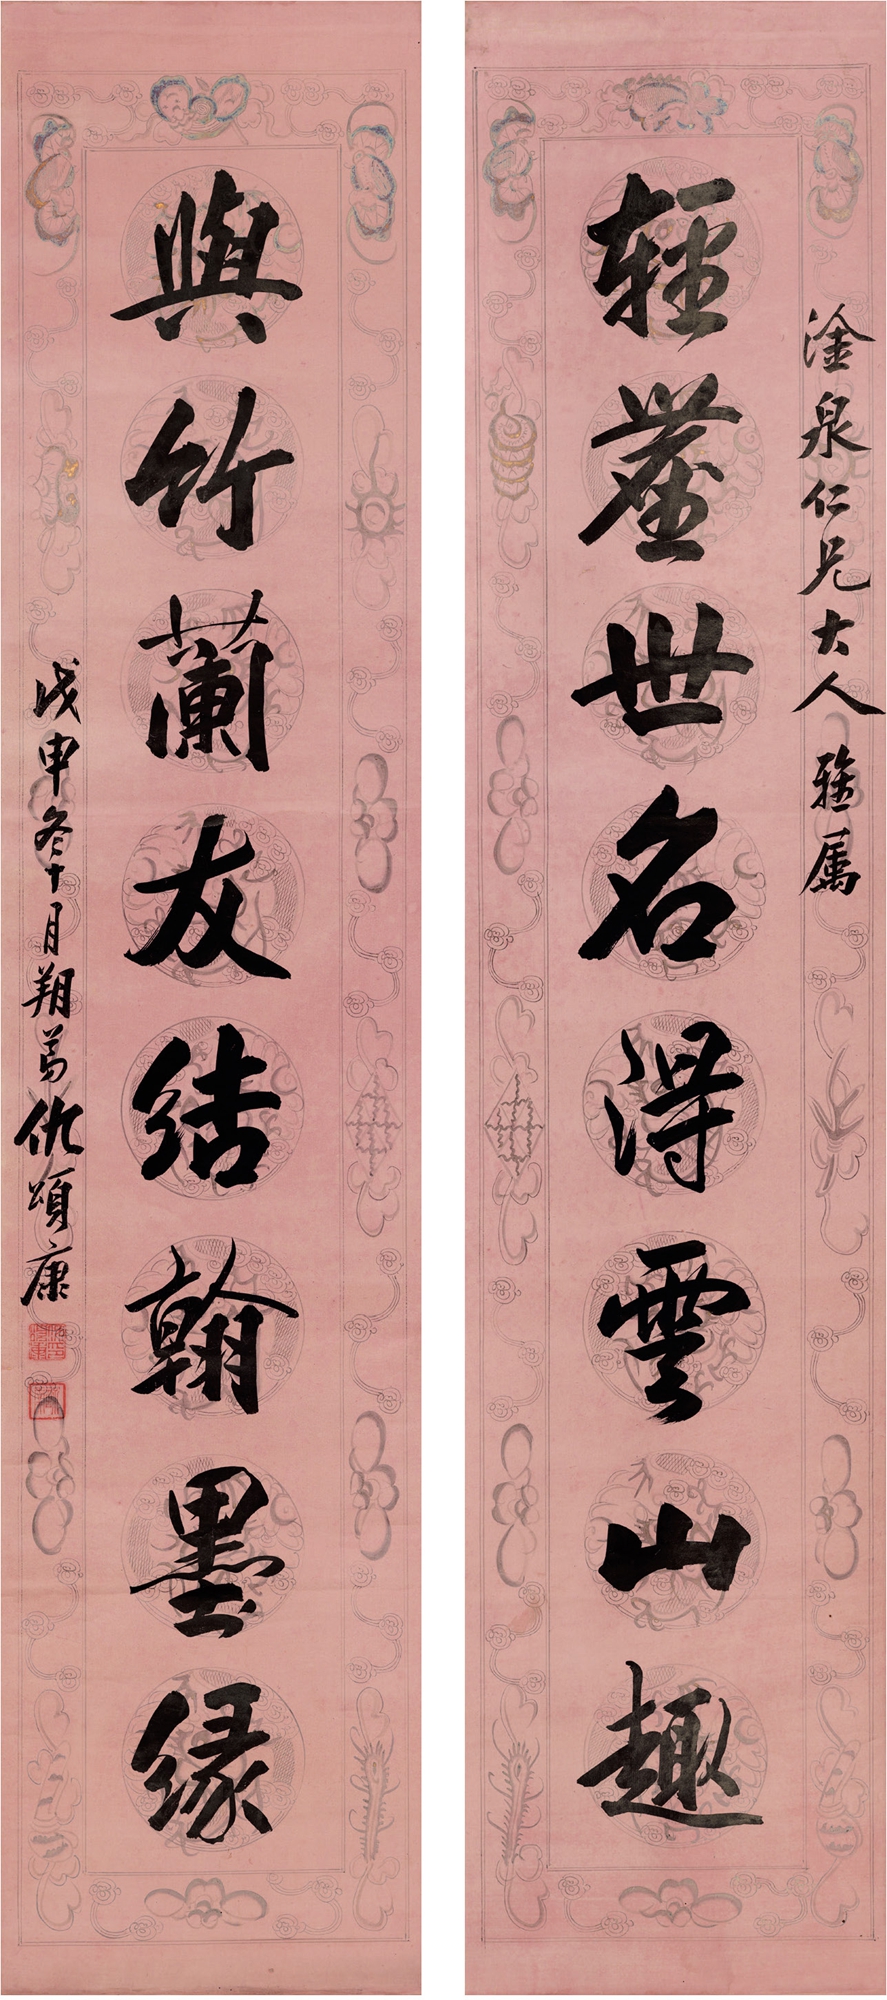 淦泉仁兄大人 雅属
輕塵世名得雲山趣
與竹蘭友結翰墨緣
戊申冬十月朔仇頌康